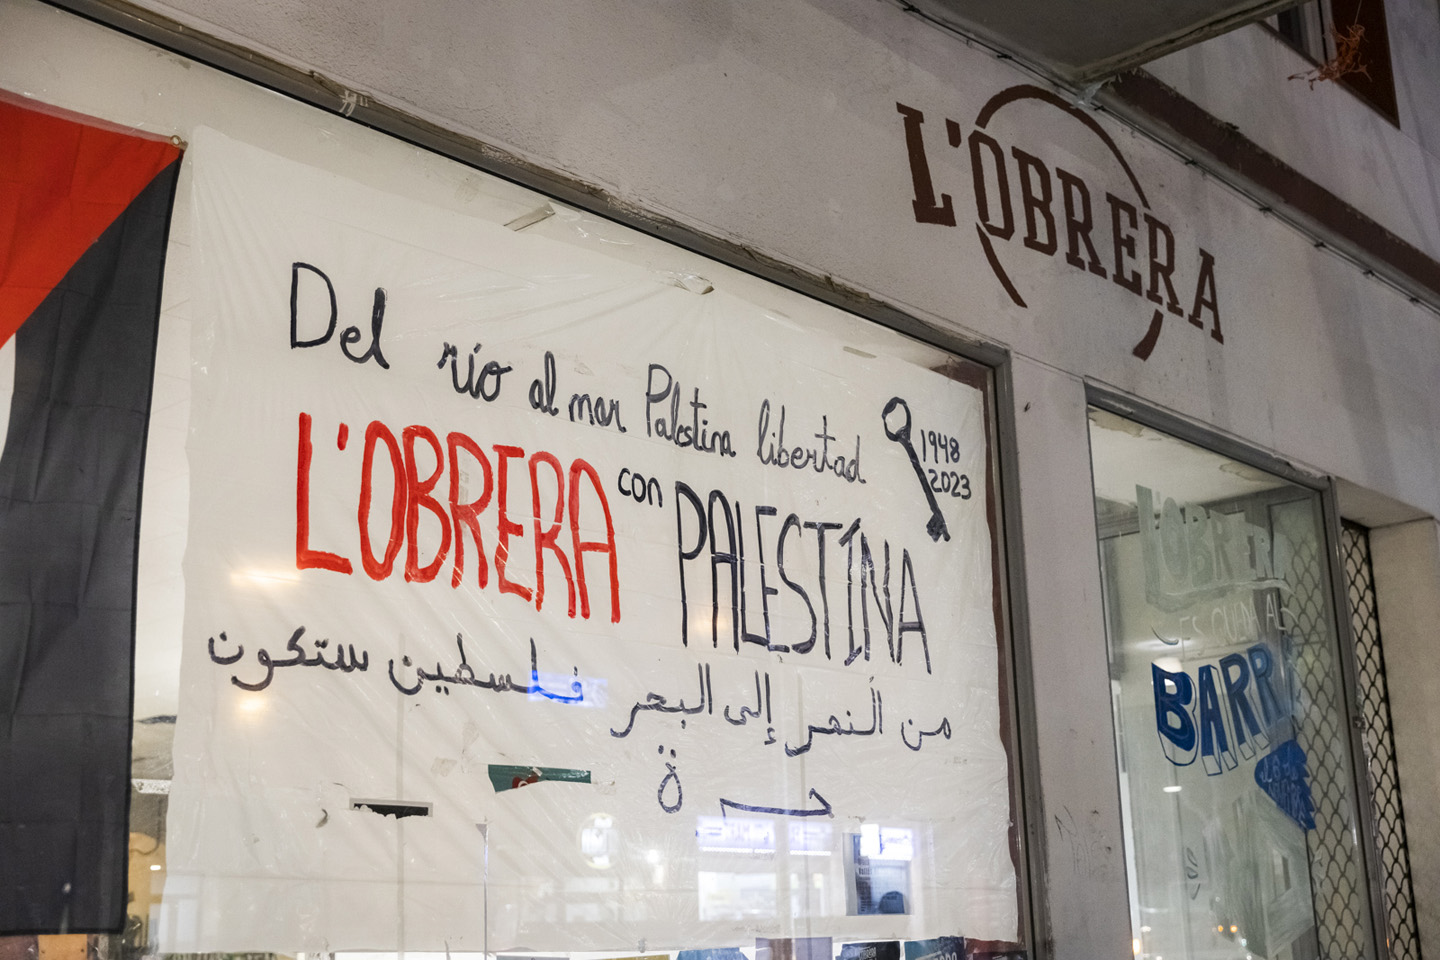 L'OBRERA
Del río al mar Palestina libertad
1948
2023
L'OBRERA con PALESTINA
من النهر إلى البحر فلسطين ستكون
حرة
L'OBRERA
ESQUINA AL
BARRI